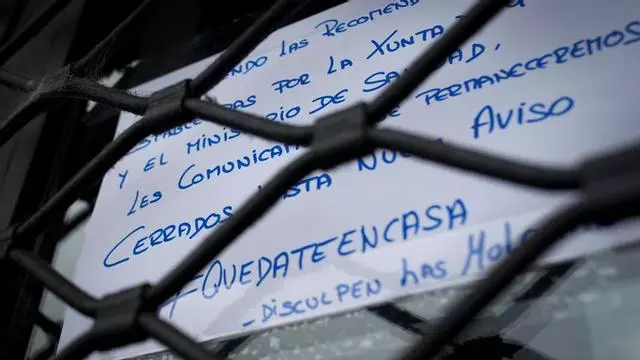 LAS RECOMEND
POR LA XUNTA
Y EL MINISTERIO DE SANIDAD,
LES COMUNICAM PERMANECEREMOS
CERRADOS HASTA NUEVO AVISO
#QUEDATEENCASA
- DISCULPEN LAS MOL